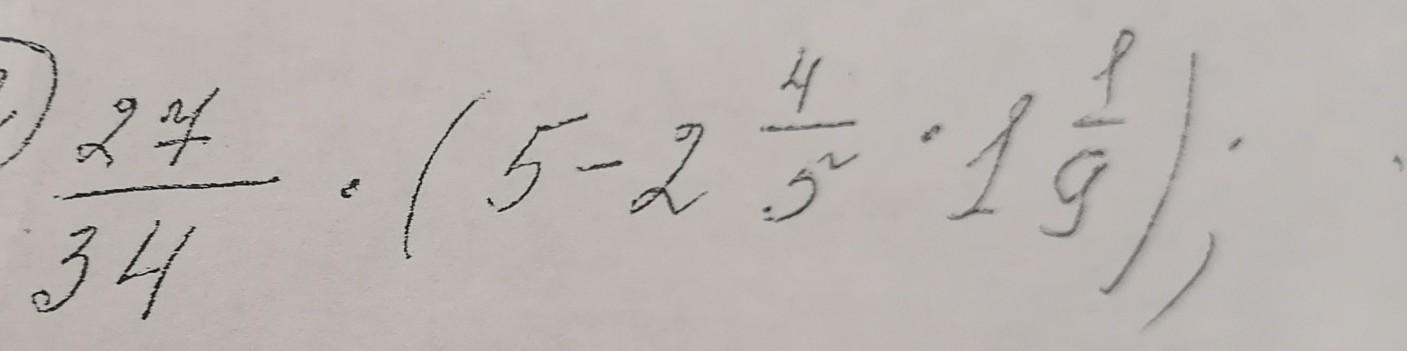 27/34 · (5 - 2 4/5 · 1 1/9);